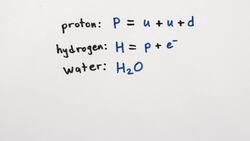 proton: P = u + u + d
hydrogen: H = p + e⁻
water: H₂O